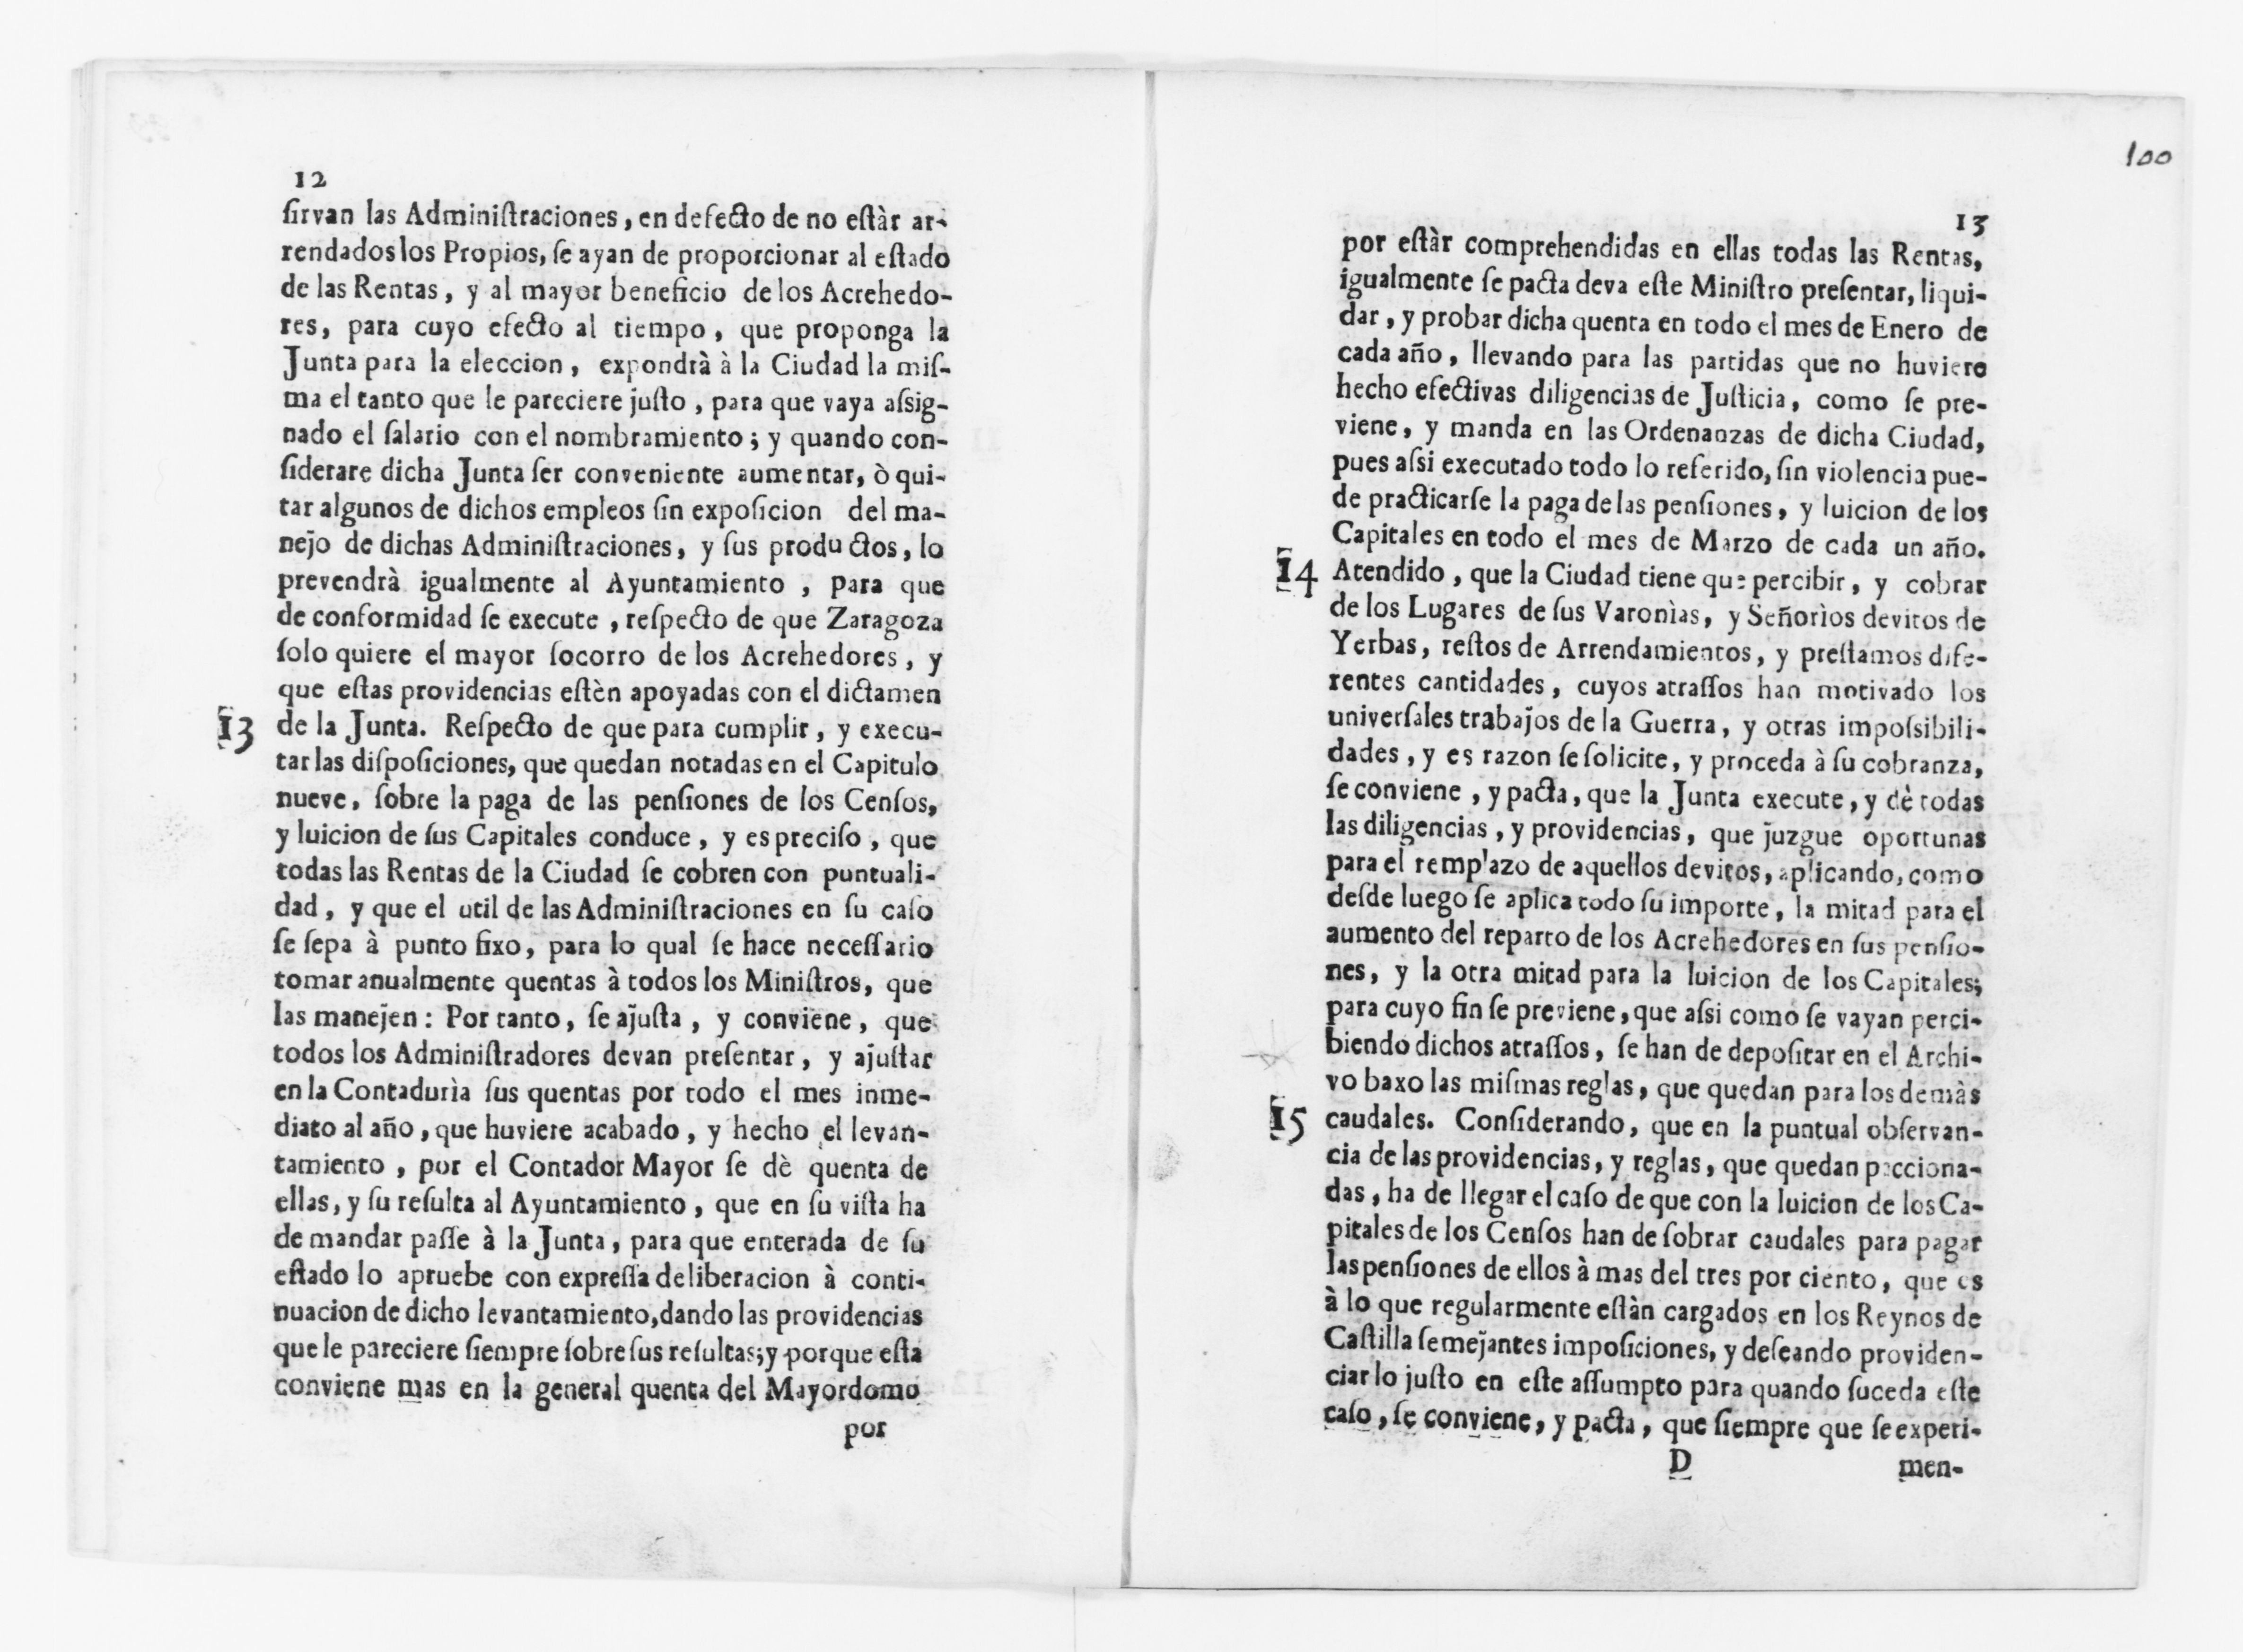 12
ſirvan las Adminiſtraciones, en defecto de no eſtàr ar-
rendados los Propios, ſe ayan de proporcionar al eſtado
de las Rentas, y al mayor beneficio de los Acrehedo-
res, para cuyo efecto al tiempo, que proponga la
Junta para la eleccion, expondrà à la Ciudad la miſ-
ma el tanto que le pareciere juſto, para que vaya aſsig-
nado el ſalario con el nombramiento; y quando con-
ſiderare dicha Junta ſer conveniente aumentar, ò qui-
tar algunos de dichos empleos ſin expoſicion del ma-
nejo de dichas Adminiſtraciones, y ſus productos, lo
prevendrà igualmente al Ayuntamiento, para que
de conformidad ſe execute, reſpecto de que Zaragoza
ſolo quiere el mayor ſocorro de los Acrehedores, y
que eſtas providencias eſtèn apoyadas con el dictamen
13 de la Junta. Reſpecto de que para cumplir, y execu-
tar las diſpoſiciones, que quedan notadas en el Capitulo
nueve, ſobre la paga de las penſiones de los Cenſos,
y luicion de ſus Capitales conduce, y es preciſo, que
todas las Rentas de la Ciudad ſe cobren con puntuali-
dad, y que el util de las Adminiſtraciones en ſu caſo
ſe ſepa à punto fixo, para lo qual ſe hace neceſſario
tomar anualmente quentas à todos los Miniſtros, que
las manejen: Por tanto, ſe ajuſta, y conviene, que
todos los Adminiſtradores devan preſentar, y ajuſtar
en la Contadurìa ſus quentas por todo el mes inme-
diato al año, que huviere acabado, y hecho el levan-
tamiento, por el Contador Mayor ſe dè quenta de
ellas, y ſu reſulta al Ayuntamiento, que en ſu viſta ha
de mandar paſſe à la Junta, para que enterada de ſu
eſtado lo apruebe con expreſſa deliberacion à conti-
nuacion de dicho levantamiento, dando las providencias
que le pareciere ſiempre ſobre ſus reſultas; y porque eſta
conviene mas en la general quenta del Mayordomo
por
100
13
por eſtàr comprehendidas en ellas todas las Rentas,
igualmente ſe pacta deva eſte Miniſtro preſentar, liqui-
dar, y probar dicha quenta en todo el mes de Enero de
cada año, llevando para las partidas que no huviere
hecho efectivas diligencias de Juſticia, como ſe pre-
viene, y manda en las Ordenanzas de dicha Ciudad,
pues aſsi executado todo lo referido, ſin violencia pue-
de practicarſe la paga de las penſiones, y luicion de los
Capitales en todo el mes de Marzo de cada un año.
14 Atendido, que la Ciudad tiene que percibir, y cobrar
de los Lugares de ſus Varonìas, y Señorìos devitos de
Yerbas, reſtos de Arrendamientos, y preſtamos dife-
rentes cantidades, cuyos atraſſos han motivado los
univerſales trabajos de la Guerra, y otras impoſsibili-
dades, y es razon ſe ſolicite, y proceda à ſu cobranza,
ſe conviene, y pacta, que la Junta execute, y dè todas
las diligencias, y providencias, que juzgue oportunas
para el remplazo de aquellos devitos, aplicando, como
deſde luego ſe aplica todo ſu importe, la mitad para el
aumento del reparto de los Acrehedores en ſus penſio-
nes, y la otra mitad para la luicion de los Capitales;
para cuyo fin ſe previene, que aſsi como ſe vayan perci-
biendo dichos atraſſos, ſe han de depoſitar en el Archi-
vo baxo las miſmas reglas, que quedan para los demàs
15 caudales. Conſiderando, que en la puntual obſervan-
cia de las providencias, y reglas, que quedan pacciona-
das, ha de llegar el caſo de que con la luicion de los Ca-
pitales de los Cenſos han de ſobrar caudales para pagar
las penſiones de ellos à mas del tres por ciento, que es
à lo que regularmente eſtàn cargados en los Reynos de
Caſtilla ſemejantes impoſiciones, y deſeando providen-
ciar lo juſto en eſte aſſumpto para quando ſuceda eſte
caſo, ſe conviene, y pacta, que ſiempre que ſe experi-
D men-